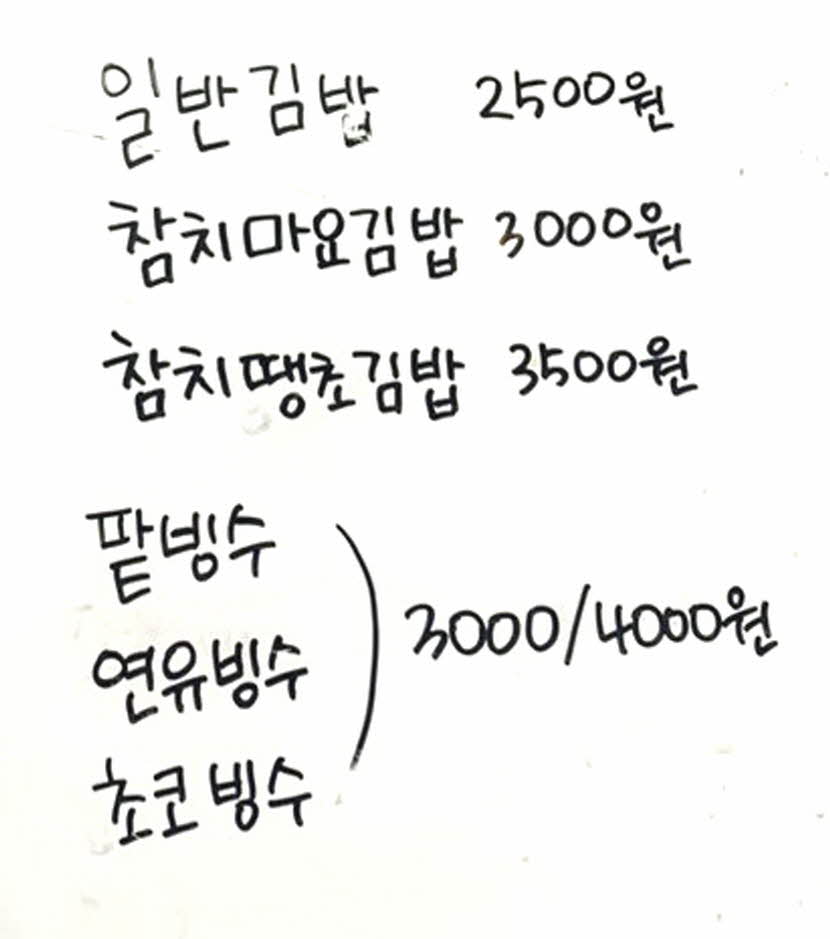 일반김밥 2500원
참치마요김밥 3000원
참치땡초김밥 3500원
팥빙수
연유빙수 3000/4000원
초코빙수